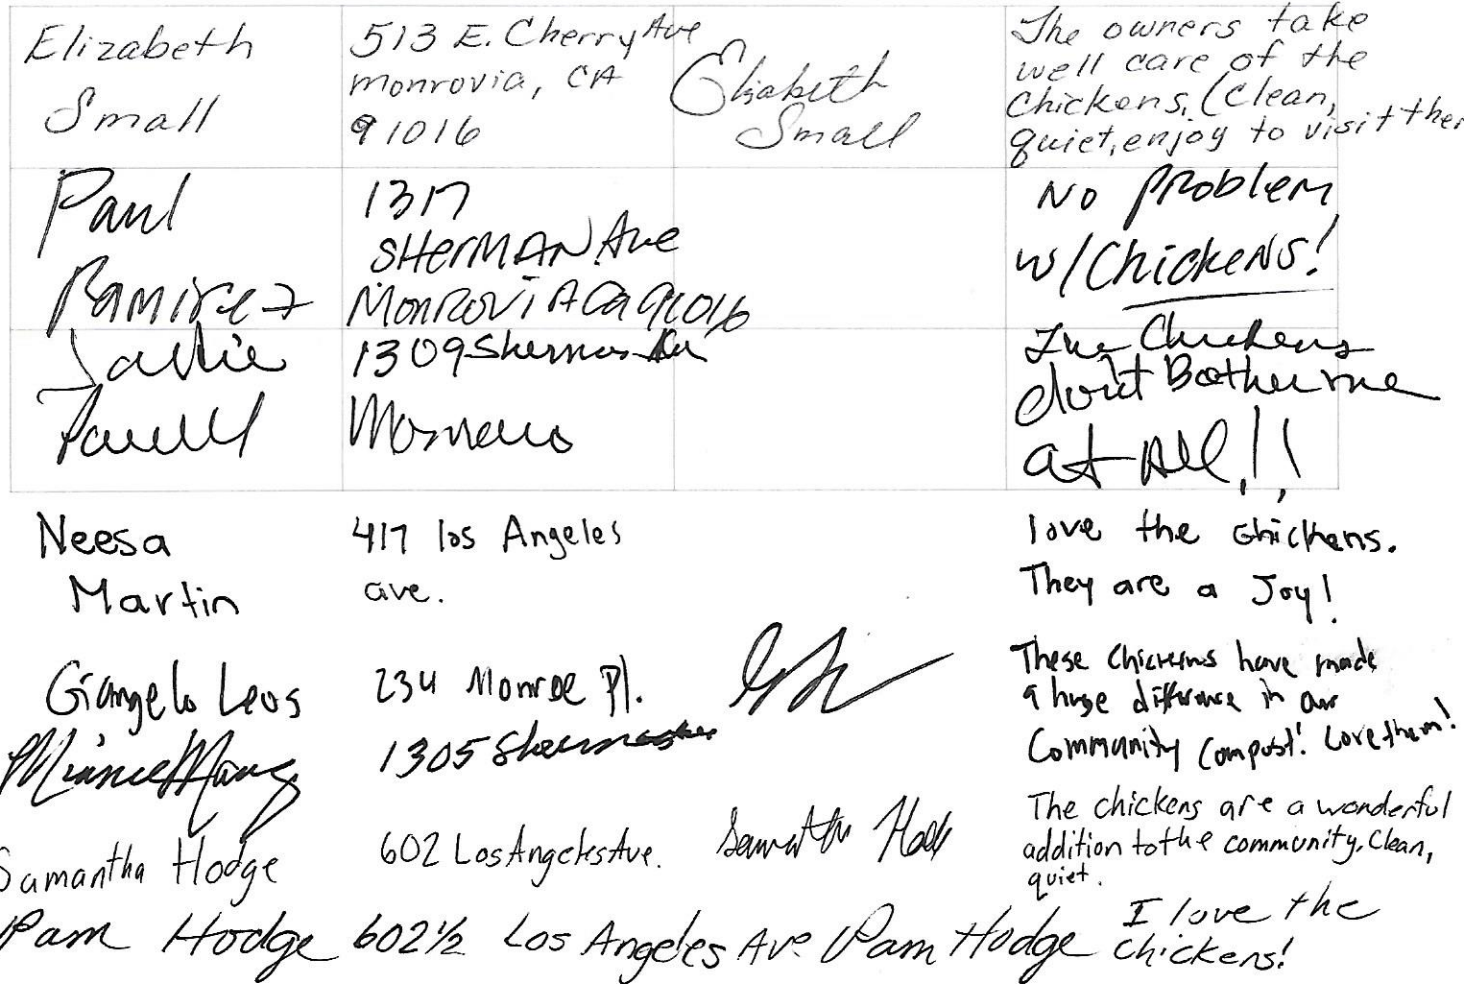 Elizabeth Small
513 E. Cherry Ave
monrovia, CA
91016
Elizabeth Small
The owners take
well care of the
chickens, (Clean,
quiet, enjoy to visit them
Paul
Ramirez
1317
SHERMAN Ave
MONROVIA Ca 91016
No problem
w/Chickens!
1309
The Chickens
don't Bother me
at All!!
Neesa
Martin
417 los Angeles
ave.
love the chickens.
They are a Joy!
Giangelo Leos
234 Monroe Pl.
These Chickens have made
a huge difference in our
Community Compost! Love them!
1305
Samantha Hodge
602 Los Angeles Ave.
Samantha Hodge
The chickens are a wonderful
addition to the community. Clean,
quiet.
Pam Hodge
602½ Los Angeles Ave
Pam Hodge
I love the
chickens!